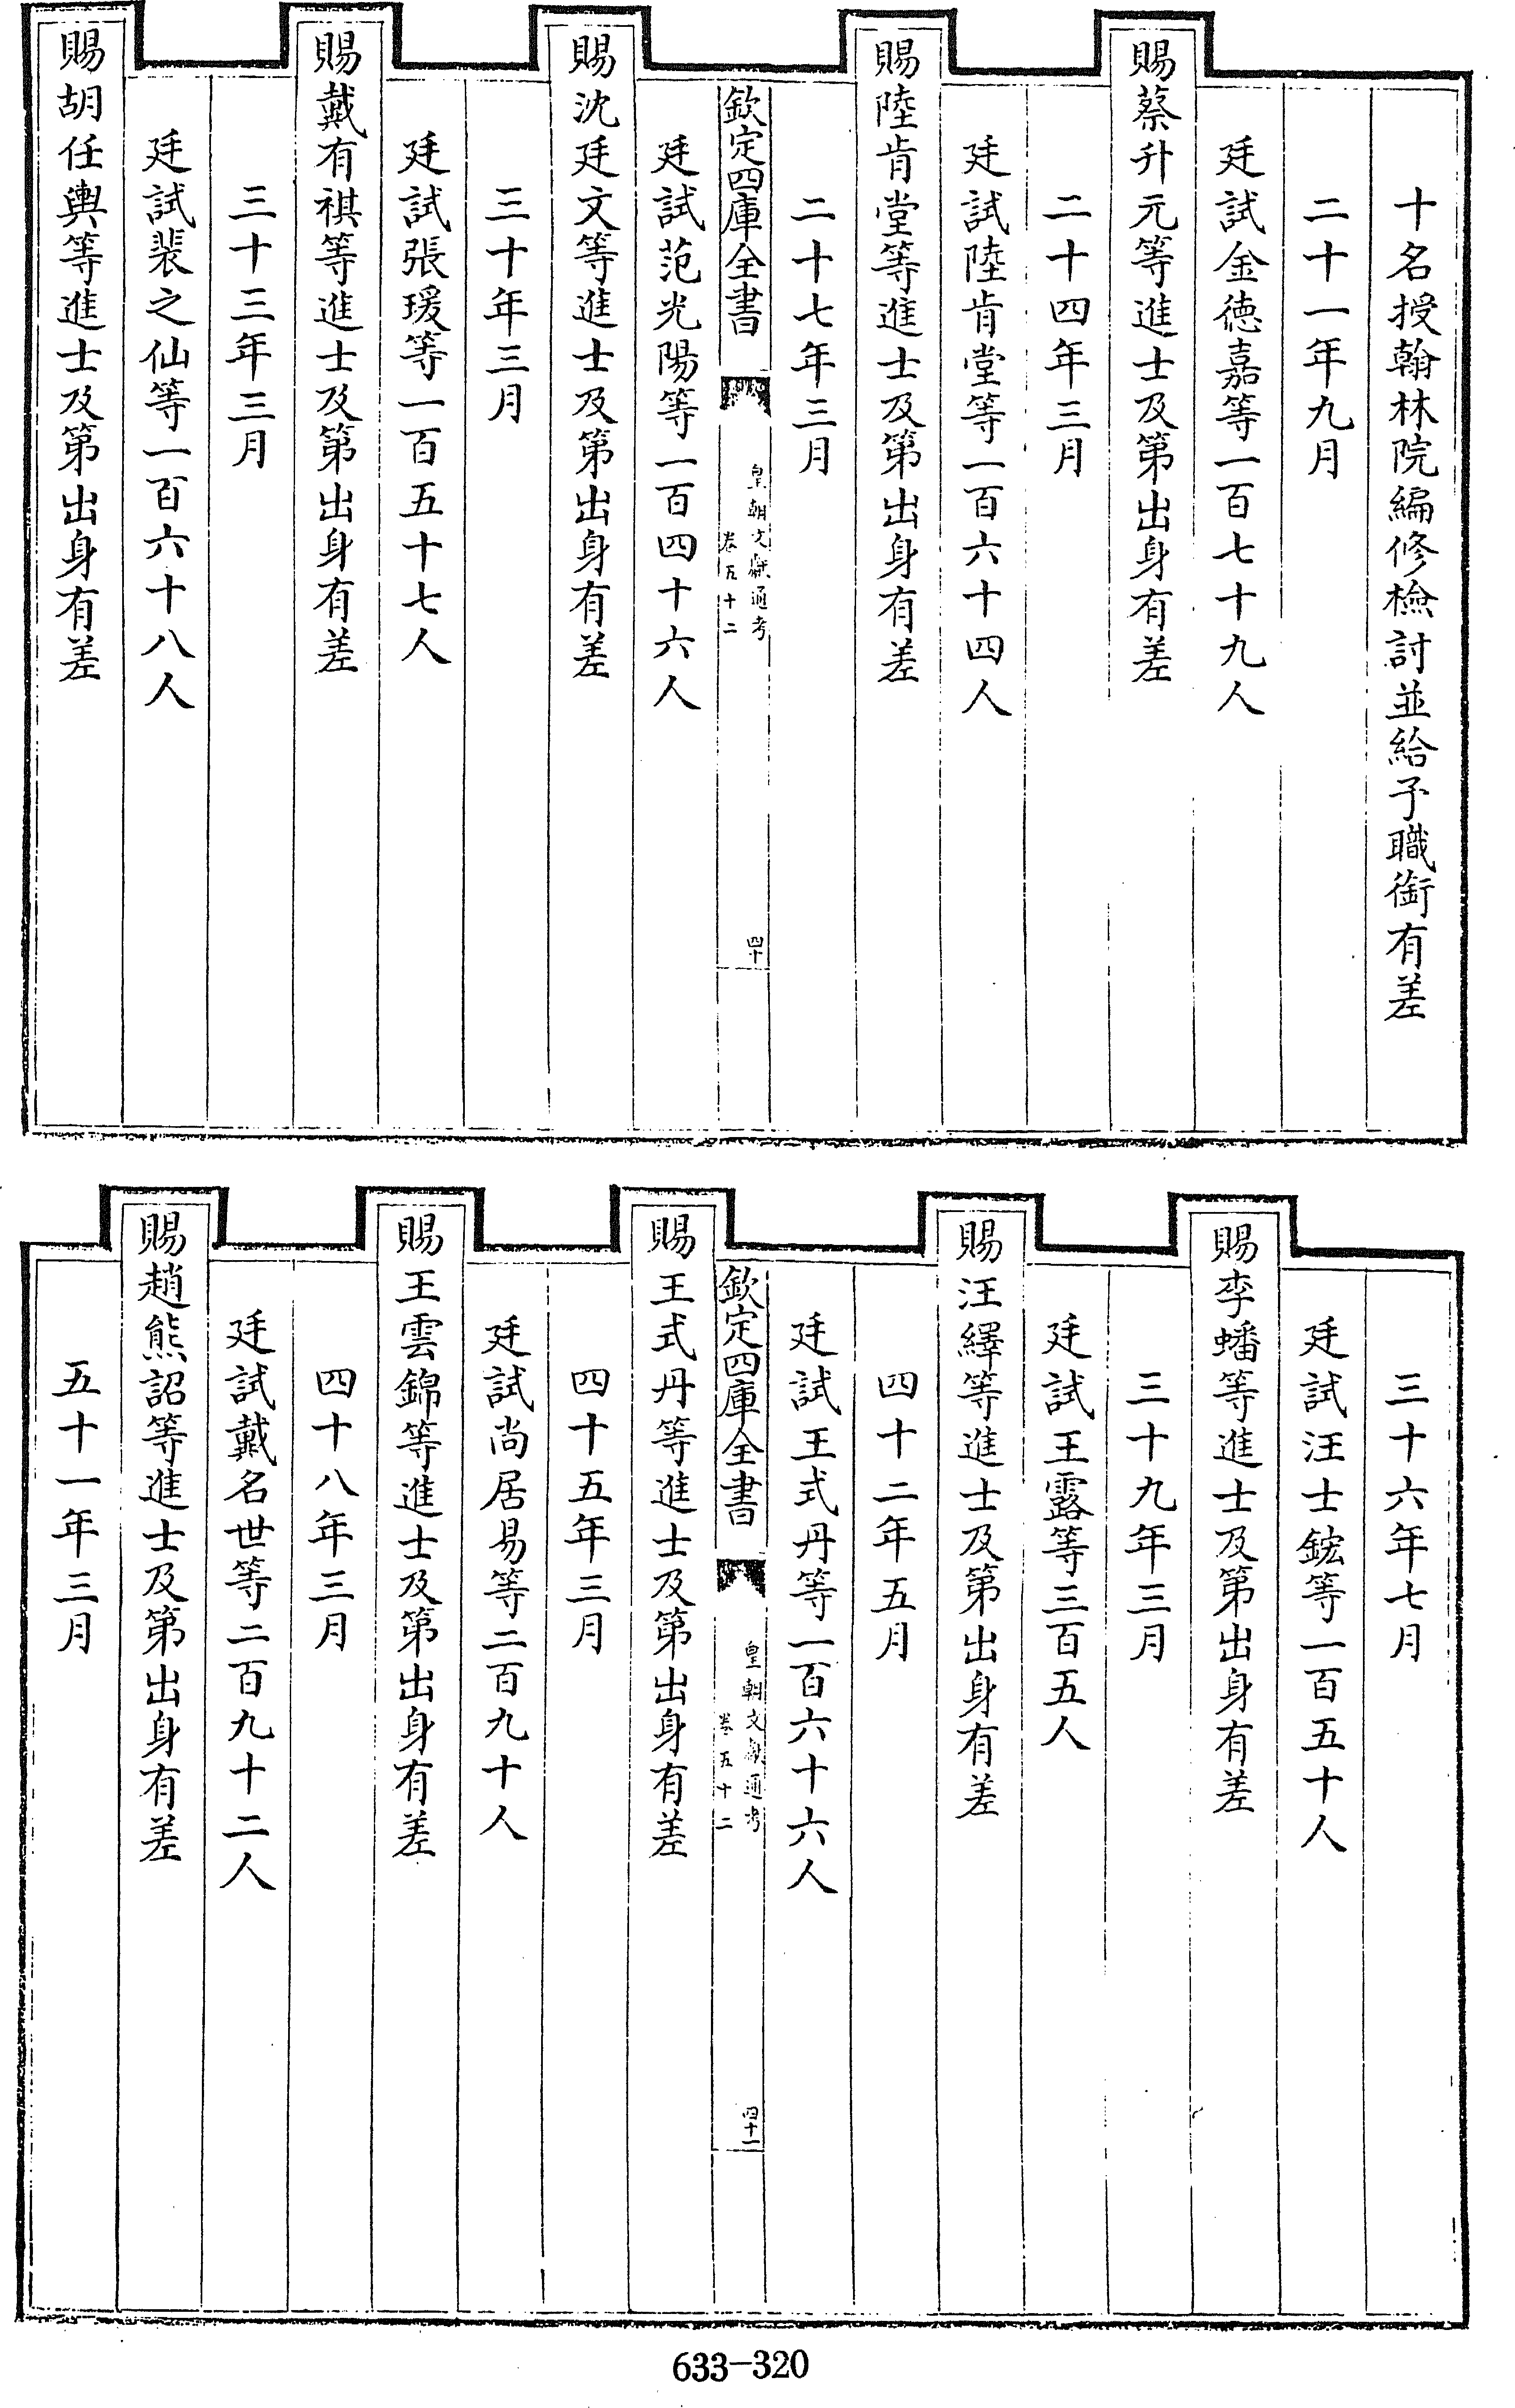 十名授翰林院編修檢討並給予職銜有差
二十一年九月
廷試金德嘉等一百七十九人
賜蔡升元等進士及第出身有差
二十四年三月
廷試陸肯堂等一百六十四人
賜陸肯堂等進士及第出身有差
二十七年三月
欽定四庫全書
皇朝文獻通考
卷五十二
四十
廷試范光陽等一百四十六人
賜沈廷文等進士及第出身有差
三十年三月
廷試張瑗等一百五十七人
賜戴有祺等進士及第出身有差
三十三年三月
廷試裴之仙等一百六十八人
賜胡任輿等進士及第出身有差
三十六年七月
廷試汪士鋐等一百五十人
賜李蟠等進士及第出身有差
三十九年三月
廷試王露等三百五人
賜汪繹等進士及第出身有差
四十二年五月
廷試王式丹等一百六十六人
欽定四庫全書
皇朝文獻通考
卷五十二
四十一
賜王式丹等進士及第出身有差
四十五年三月
廷試尚居易等二百九十人
賜王雲錦等進士及第出身有差
四十八年三月
廷試戴名世等二百九十二人
賜趙熊詔等進士及第出身有差
五十一年三月
633-320